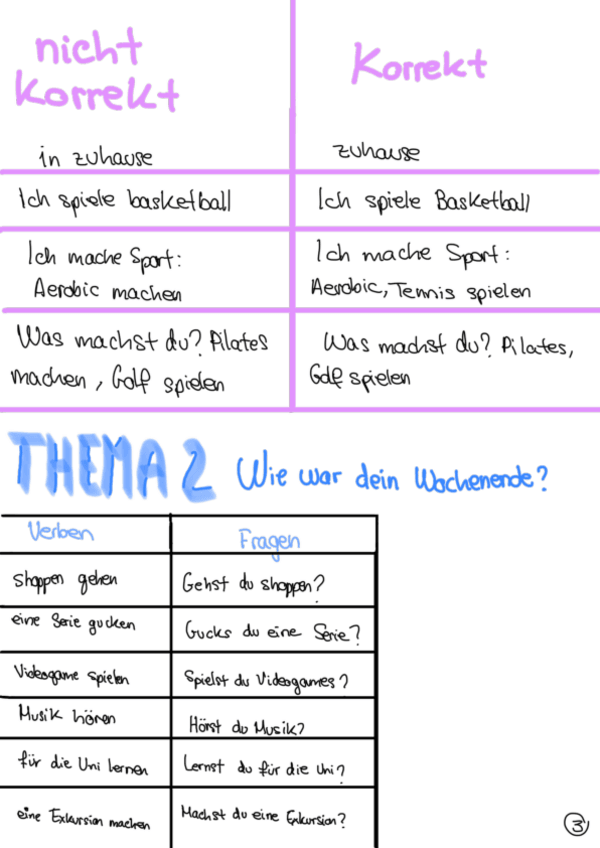 nicht
Korrekt
Korrekt
in zuhause
zuhause
Ich spiele basketball
Ich spiele Basketball
Ich mache Sport:
Aerobic machen
Ich mache Sport:
Aerobic, Tennis spielen
Was machst du? Pilates
machen, Golf spielen
Was machst du? Pilates,
Golf spielen
THEMA 2 Wie war dein Wochenende?
Verben
Fragen
shoppen gehen
Gehst du shoppen?
eine Serie gucken
Gucks du eine Serie?
Videogame spielen
Spielst du Videogames?
Musik hören
Hörst du Musik?
für die Uni lernen
Lernst du für die Uni?
eine Exkursion machen
Machst du eine Exkursion?
3